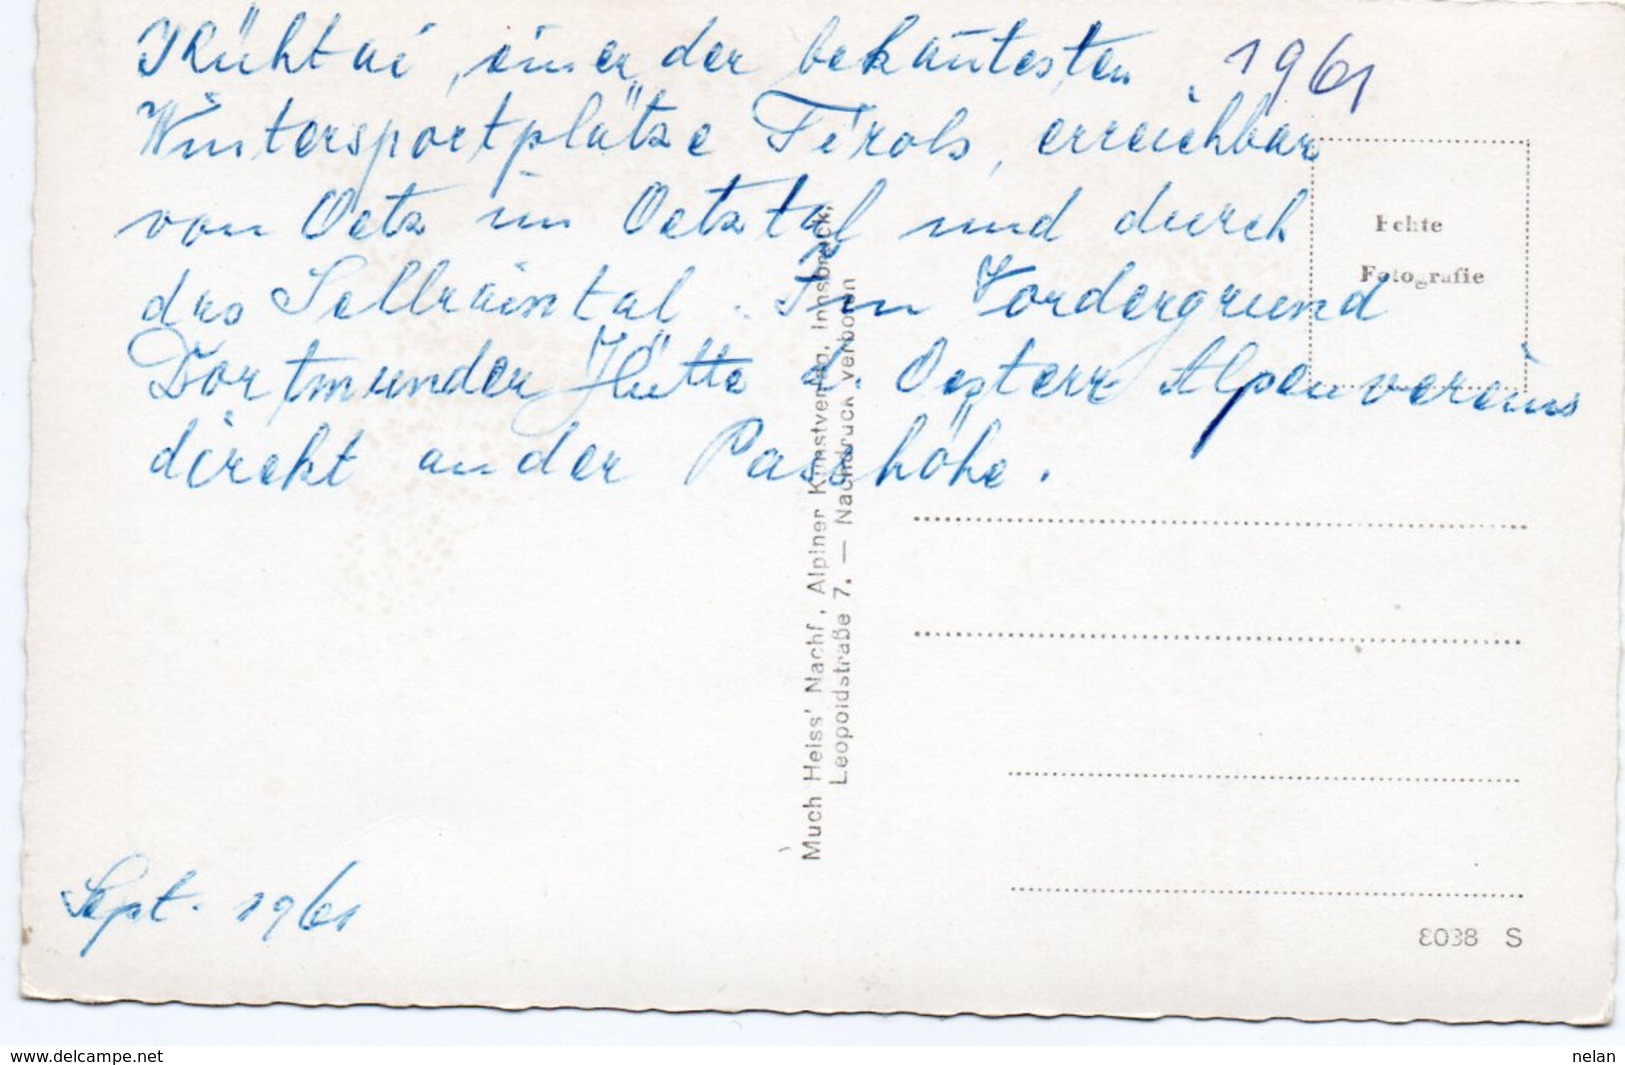 Kühtai, einer der bekan̄testen 1961
Wintersportplätze Tirols, erreichbar
von Oetz im Oetztal und durch
das Sellraintal. Im Vordergrund
Dortmunder Hütte d. Oesterr. Alpenvereins
direkt an der Passhöhe.
Echte
Fotografie
Much Heiss' Nachf., Alpiner Kunstverlag, Innsbruck,
Leopoldstraße 7. — Nachdruck verboten
Sept. 1961
8038 S
www.delcampe.net
nelan